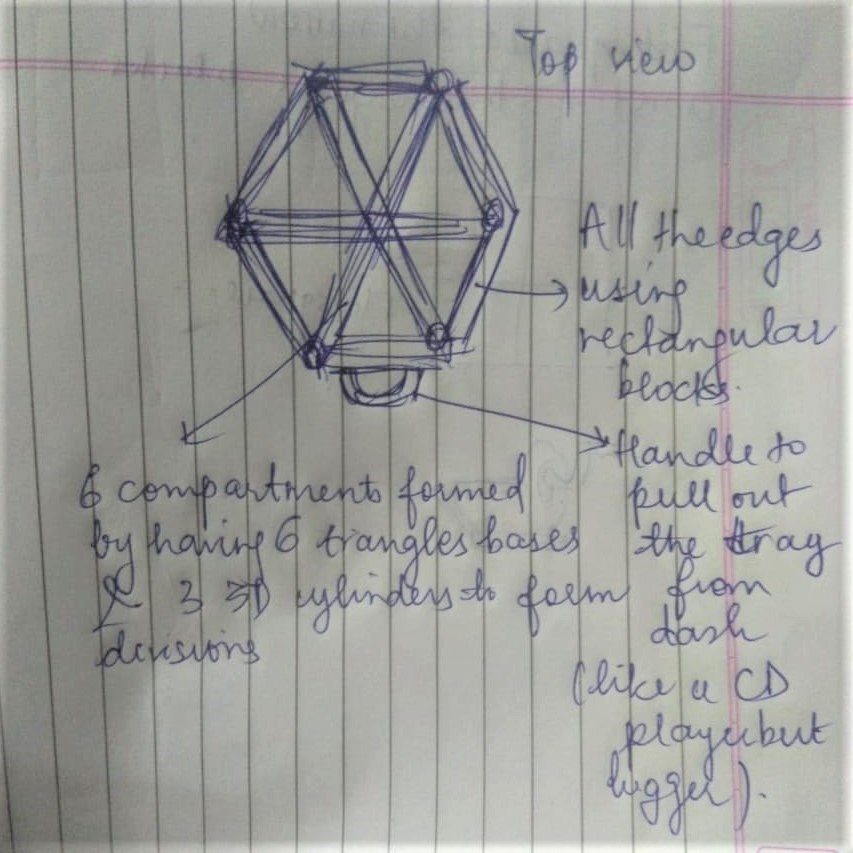 Top view
All the edges
using
rectangular
blocks.
Handle to
pull out
the tray
from
dash
(like a CD
player but
bigger).
6 compartments formed
by having 6 triangles bases
& 3 3D cylinders to form
divisions